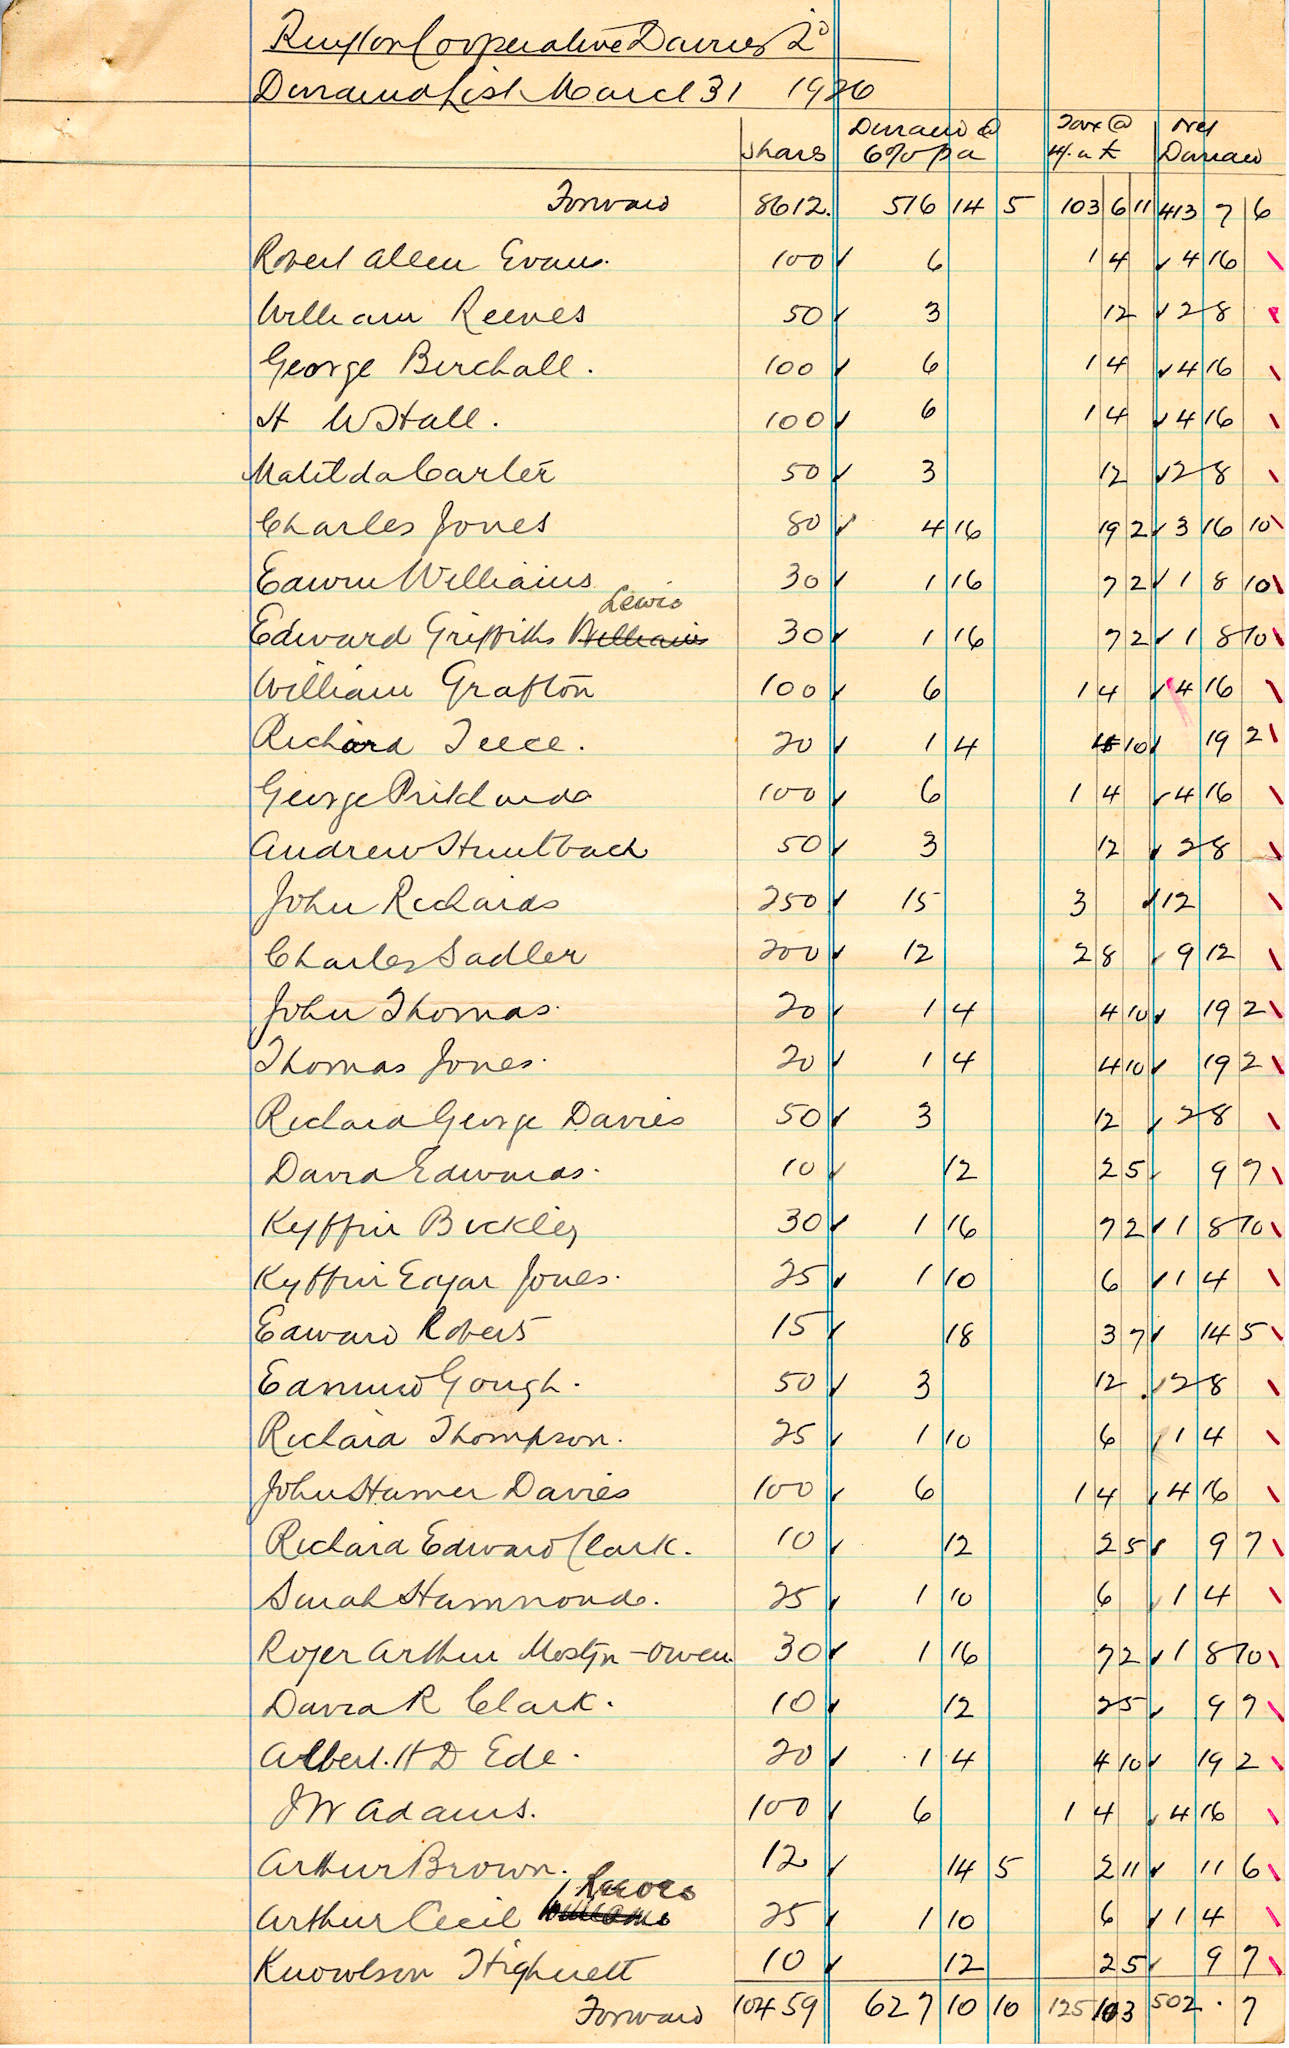 Ruyton Cooperative Dairies Ld
Dividend List March 31 1926
Shares Dividend @ 6% pa Tax @ 4/- a £ Net Dividend
Forward 8612. 516 14 5 103 6 11 413 7 6
Robert Allen Evans. 100 6 1 4 4 16
William Reeves 50 3 12 2 8
George Birchall. 100 6 1 4 4 16
H W Hall. 100 6 1 4 4 16
Matilda Carter 50 3 12 2 8
Charles Jones 80 4 16 19 2 3 16 10
Edwin Williams 30 1 16 7 2 1 8 10
Lewis
Edward Griffiths Williams 30 1 16 7 2 1 8 10
William Grafton 100 6 1 4 4 16
Richard Teece. 20 1 4 4 10 19 2
George Pritchards 100 6 1 4 4 16
Andrew Huntbach 50 3 12 2 8
John Richards 250 15 3 12
Charles Sadler 200 12 2 8 9 12
John Thomas. 20 1 4 4 10 19 2
Thomas Jones. 20 1 4 4 10 19 2
Richard George Davies 50 3 12 2 8
David Edwards. 10 12 2 5 9 7
Kyffin Bickley 30 1 16 7 2 1 8 10
Kyffin Edgar Jones. 25 1 10 6 1 4
Edward Roberts 15 18 3 7 14 5
Edmund Gough. 50 3 12 2 8
Richard Thompson. 25 1 10 6 1 4
John Hamer Davies 100 6 1 4 4 16
Richard Edward Clark. 10 12 2 5 9 7
Sarah Hammonds. 25 1 10 6 1 4
Roger Arthur Mostyn-Owen. 30 1 16 7 2 1 8 10
David R Clark. 10 12 2 5 9 7
Albert. H D Ede. 20 1 4 4 10 19 2
J W Adams. 100 6 1 4 4 16
Arthur Brown. 12 14 5 2 11 11 6
Reeves
Arthur Cecil Williams 25 1 10 6 1 4
Knowlson Highnett 10 12 2 5 9 7
Forward 10459 627 10 10 125 10 3 502 . 7